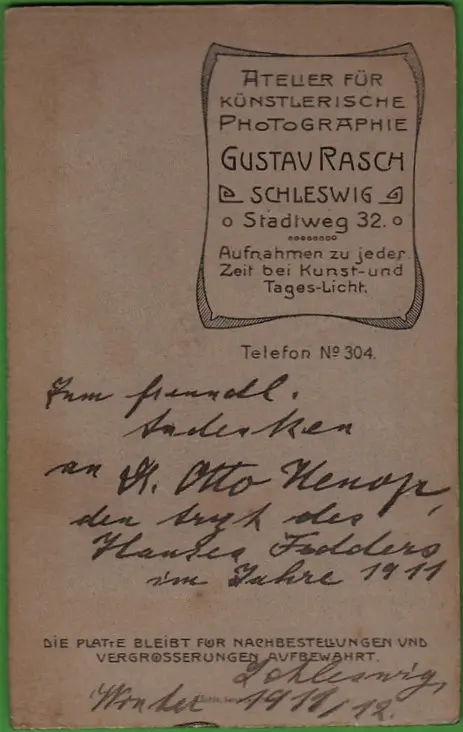 ATELIER FÜR
KÜNSTLERISCHE
PHOTOGRAPHIE
GUSTAV RASCH
SCHLESWIG
Stadtweg 32.
Aufnahmen zu jeder
Zeit bei Kunst-und
Tages-Licht.
Telefon Nº 304.
Zum freundl.
Andenken
an Dr. Otto
den Arzt des
Hauses Fedders
im Jahre 1911
DIE PLATTE BLEIBT FÜR NACHBESTELLUNGEN UND
VERGRÖSSERUNGEN AUFBEWAHRT.
Schleswig,
Winter 1911/12.